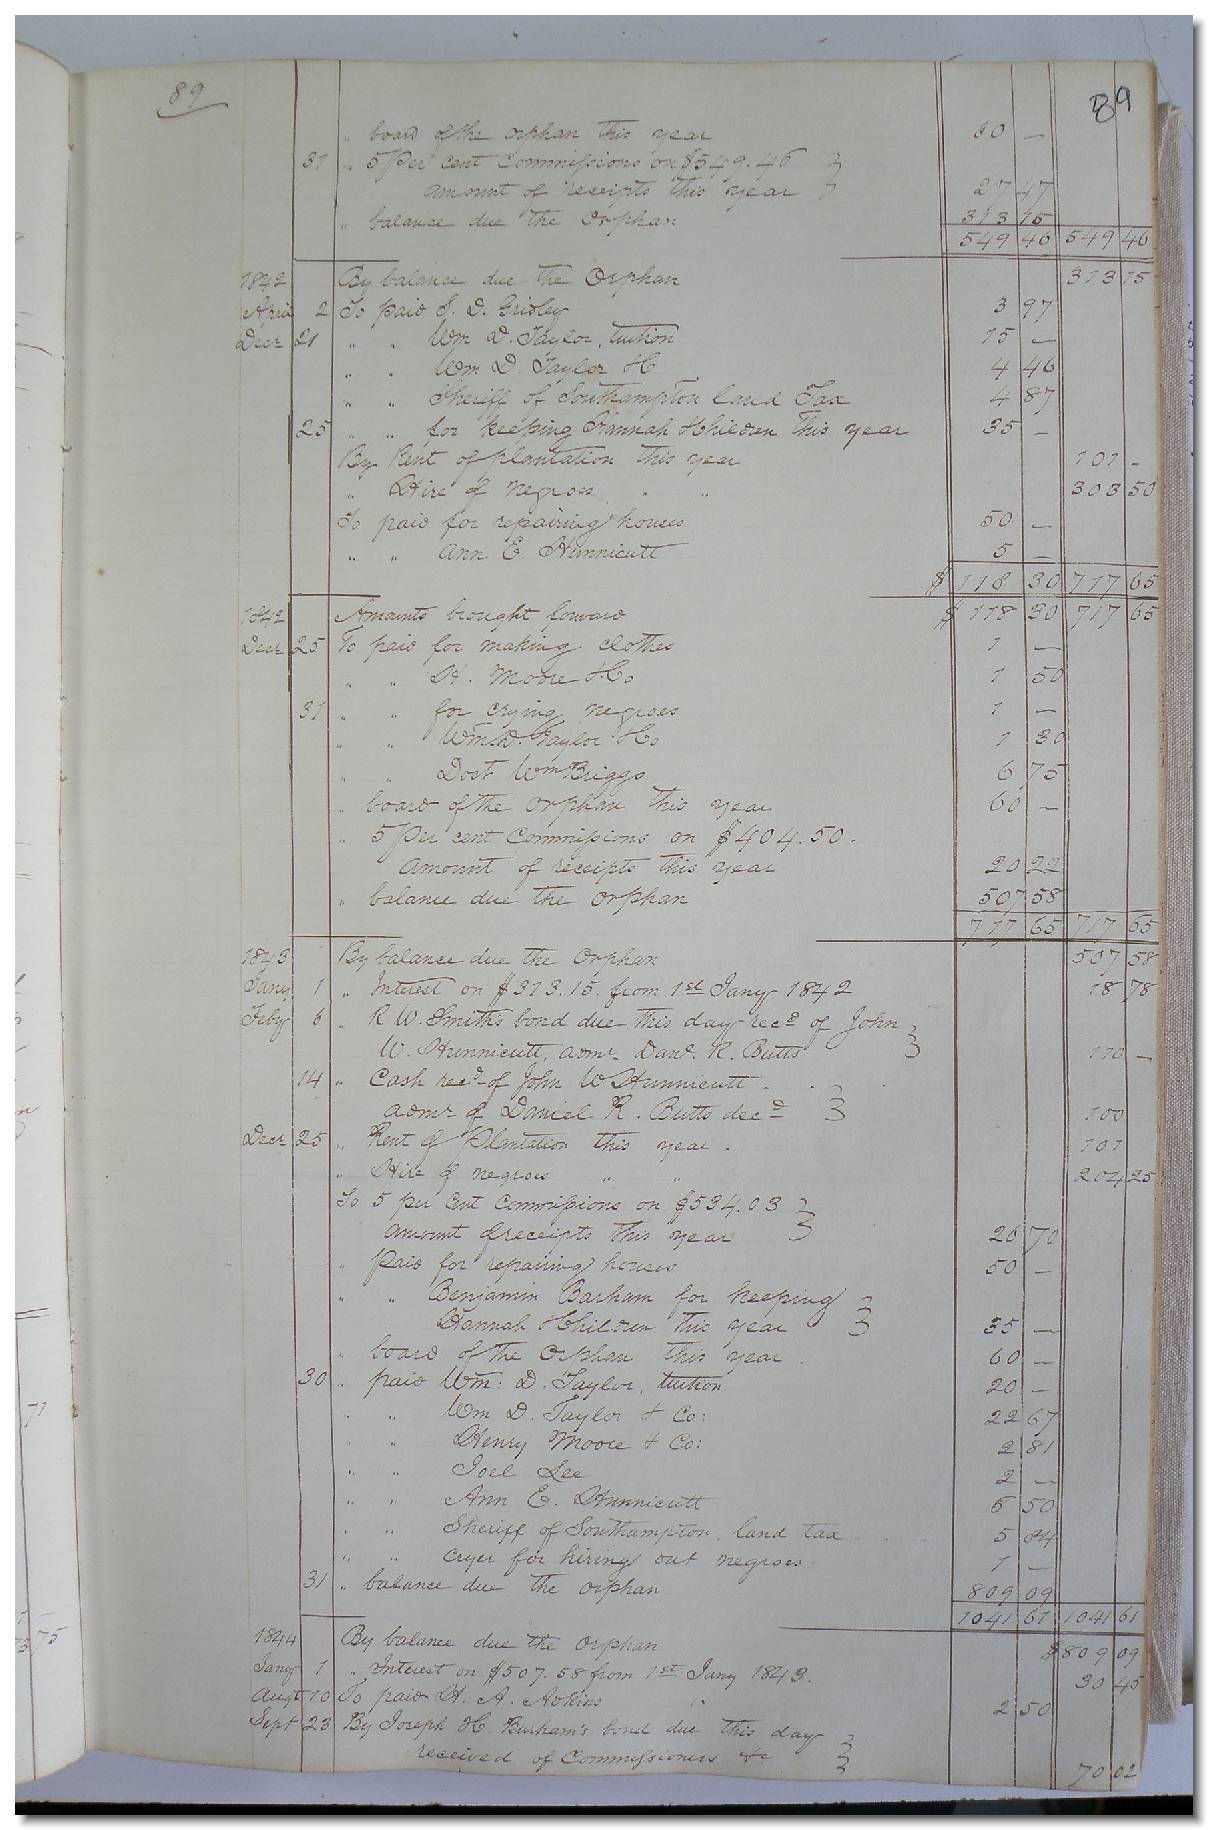 89
89
" board of the orphan this year 60 —
31 " 5 Per cent Commissions on $549.46
amount of receipts this year 27 47
" balance due the Orphan 313 15
549 46 549 46
1842 By balance due the Orphan 313 15
April 2 To paid J. D. Gridley 3 97
Decr 21 " " Wm D. Taylor, tuition 15 —
" " Wm D. Taylor &C 4 46
" " Sheriff of Southampton land Tax 4 87
25 " " for keeping Hannah & Children this year 35 —
By Rent of plantation this year 101 —
" Hire of negroes " " 303 50
To paid for repairing houses 50 —
" " Ann E. Hunnicutt 5 —
$ 118 30 717 65
1842 Amounts brought forward $ 118 30 717 65
Decr 25 To paid for making clothes 1 —
" " H. Moore & Co 1 50
31 " " for crying negroes 1 —
" " Wm D. Taylor & Co 1 30
" " Doct Wm Briggs 6 75
" board of the orphan this year 60 —
" 5 Per cent Commissions on $404.50.
amount of receipts this year 20 22
" balance due the orphan 507 58
717 65 717 65
1843 By balance due the Orphan 507 58
Jany 1 " Interest on $313.15. from 1st Jany 1842 18 78
Feby 6 " R W. Smith's bond due this day recd of John
W. Hunnicutt, admr Danl. R. Butts 110 —
14 " Cash recd of John W Hunnicutt
admr of Daniel R. Butts decd 100
Decr 25 " Rent of Plantation this year. 101
" Hire of negroes " " 204 25
To 5 per Cent Commissions on $534.03
amount of receipts this year 26 70
" Paid for repairing houses 50 —
" " Benjamin Barham for keeping
Hannah & Children this year 35 —
" board of the Orphan this year. 60 —
30 " paid Wm: D. Taylor, tuition 20 —
" " Wm D. Taylor & Co: 22 67
" " Henry Moore & Co: 2 81
" " Joel Lee 2 —
" " Ann E. Hunnicutt 6 50
" " Sheriff of Southampton, land tax 5 84
" " cryer for hiring out negroes. 1 —
31 " balance due the orphan 809 09
1041 61 1041 61
1844 By balance due the orphan $809 09
Jany 1 " Interest on $507.58 from 1st Jany 1843. 30 45
Augt 10 To paid H. A. Adkins 2 50
Sept 23 By Joseph H. Barham's bond due this day
received of Commissioners &c 70 02
71
73 75